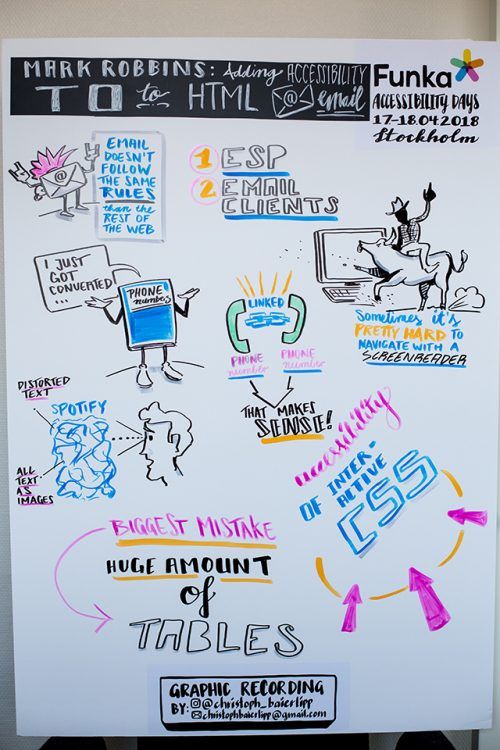 MARK ROBBINS: Adding ACCESSIBILITY
TO to HTML @ email
Funka
ACCESSIBILITY DAYS
17-18.04.2018
Stockholm
@
EMAIL
DOESN'T
FOLLOW
THE SAME
RULES
than the
REST OF
THE WEB
1 ESP
2 EMAIL
CLIENTS
I JUST
GOT
CONVERTED
...
PHONE
number
LINKED
PHONE
number
PHONE
number
THAT MAKES
SENSE!
Sometimes it's
PRETTY HARD TO
NAVIGATE WITH A
SCREENREADER
DISTORTED
TEXT
SPOTIFY
ALL
TEXT
AS
IMAGES
accessibility
OF INTER-
ACTIVE
CSS
BIGGEST MISTAKE
HUGE AMOUNT
of
TABLES
GRAPHIC RECORDING
BY: @christoph_baierlipp
christophbaierlipp@gmail.com